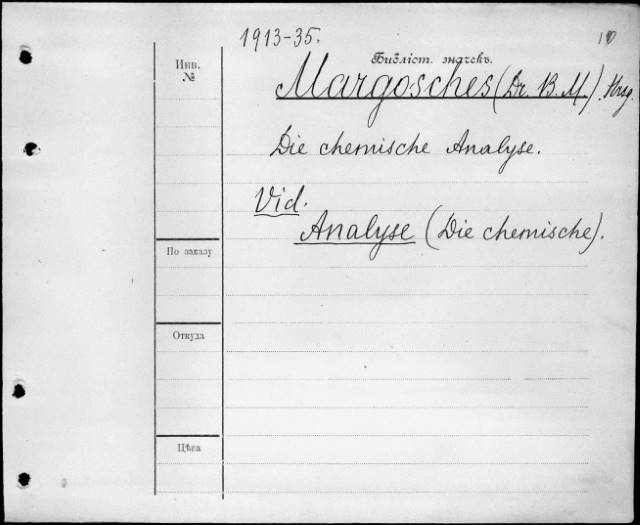 1913-35.
10
Инв.
№
Библіот. значекъ.
Margosches (Dr. B. M.). Hrsg.
Die chemische Analyse.
Vid.
Analyse (Die chemische).
По заказу
Откуда
Цѣна